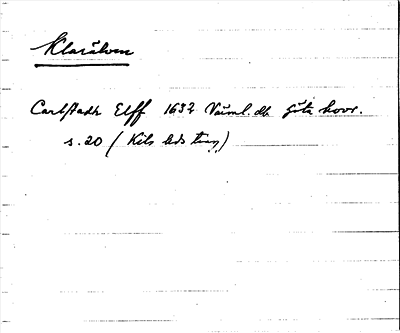 Klarälven
Carlstadh Elff 1632 Värml. db Göta hovr.
s. 20 (Kils hds tray)